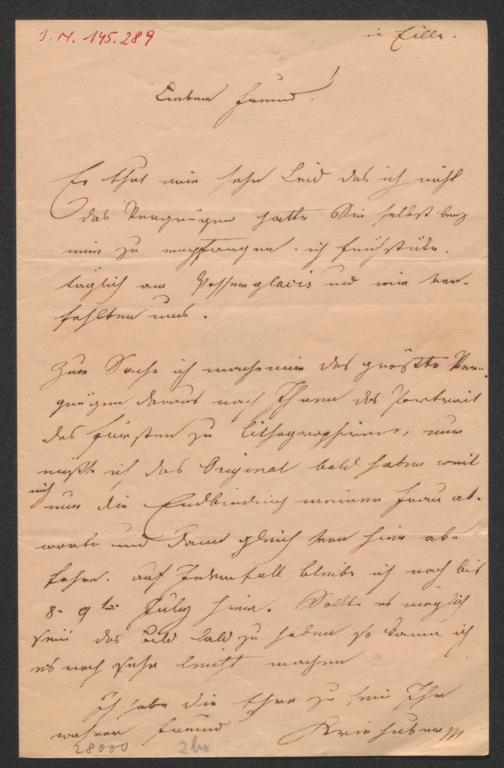 I. N. 145.289
in Eille.
Lieber Freund!
Es thut mir sehr Leid das ich nicht
das Vergnügen hatte Sie selbst bey
mir zu empfangen. ich frühstüke
täglich am Wasserglacis und wir ver-
fehlten uns.
Zur Sache ich mache mir das größte Ver-
gnügen daraus nach Ihnen das Portrait
des Fürsten zu lithographiren, nur
müßte ich das Original bald haben weil
ich nur die Endbindung meiner Frau ab-
warte und dann gleich von hier ab-
fahre. auf Jedenfall bleibe ich noch bis
8- 9ten July hier. Sollte es möglich
sein das Bild bald zu haben so kann ich
es noch sehr leicht machen
Ich habe die Ehre zu sein Ihr
wahrer Freund Kriehuber
28000